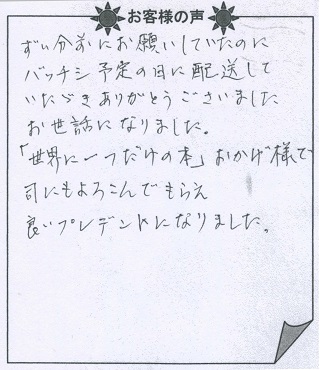 お客様の声
ずい分前にお願いしていたのに
バッチシ予定の日に配送して
いただきありがとうございました
お世話になりました。
「世界に一つだけの本」おかげ様で
司にもよろこんでもらえ
良いプレゼントになりました。